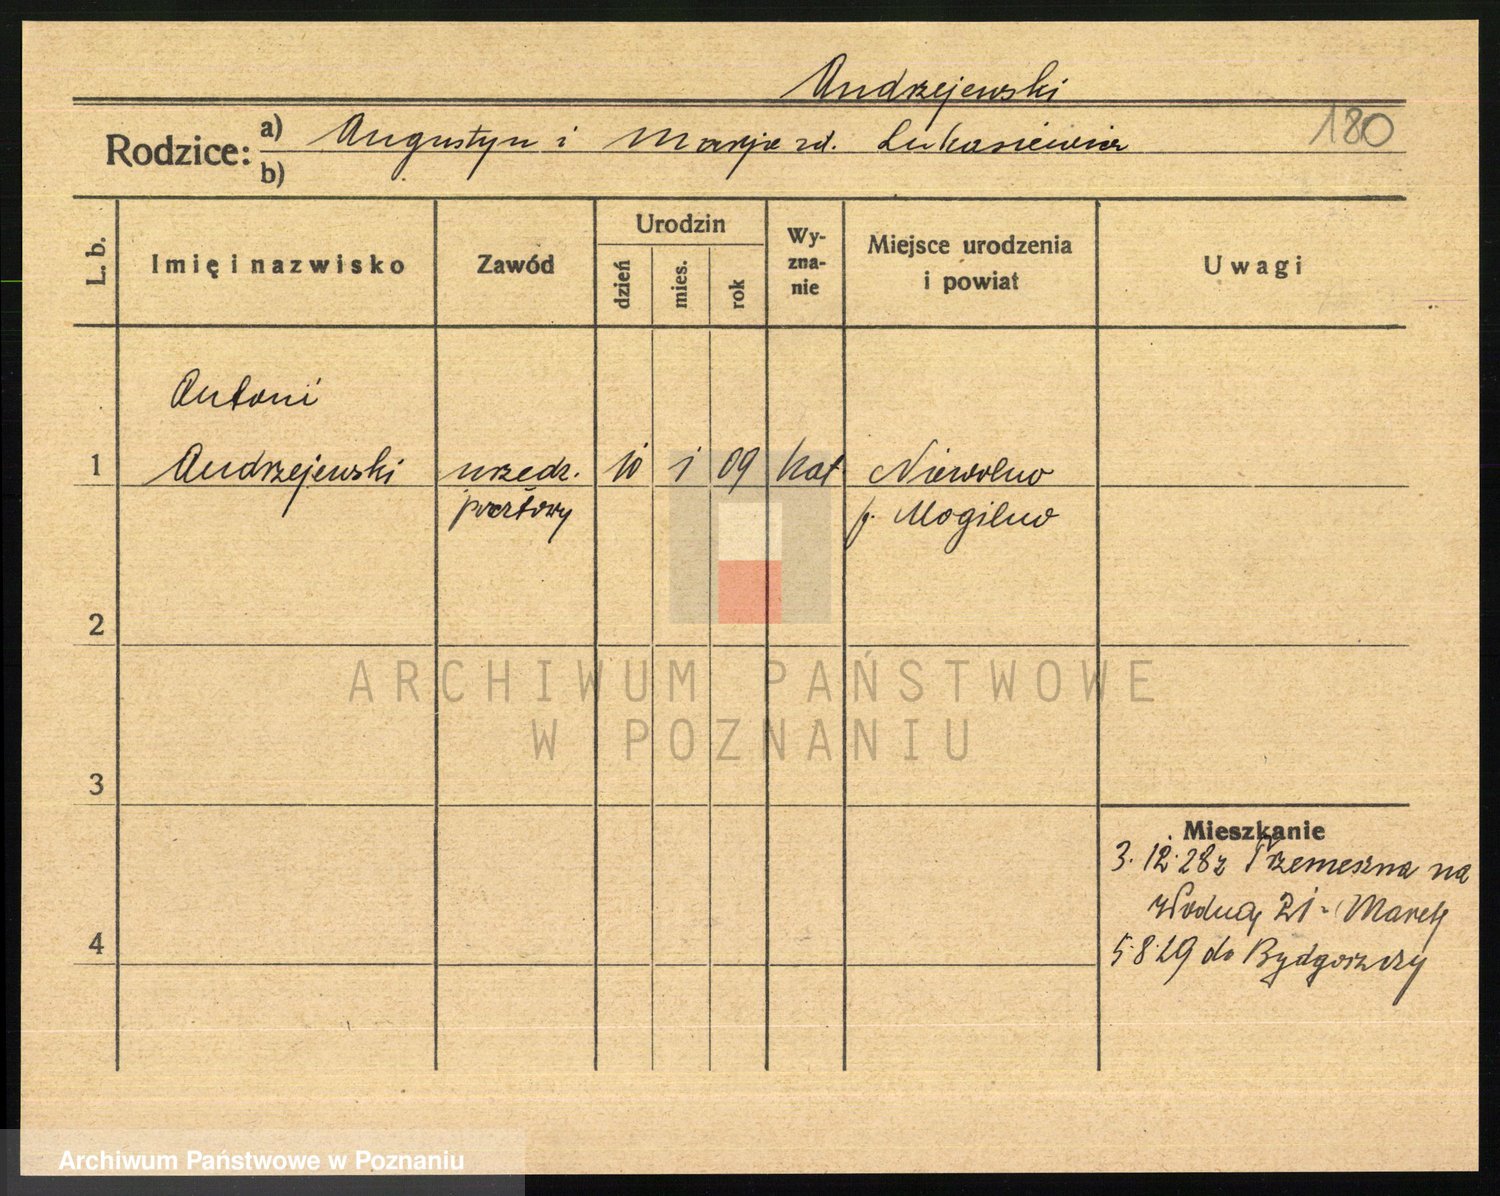 Andrzejewski
180
Rodzice: a) Augustyn i Marja zd. Łukasiewicz
b)
L. b.
Imię i nazwisko
Zawód
Urodzin
dzień
mies.
rok
Wy-
zna-
nie
Miejsce urodzenia
i powiat
Uwagi
Antoni
1 Andrzejewski urzędn. 10 1 09 kat Niewolno
pocztowy p. Mogilno
2
ARCHIWUM PAŃSTWOWE
W POZNANIU
3
Mieszkanie
3. 12. 28 z Trzemeszna na
Wodną 21 - Marek
4
5.8.29 do Bydgoszczy
Archiwum Państwowe w Poznaniu